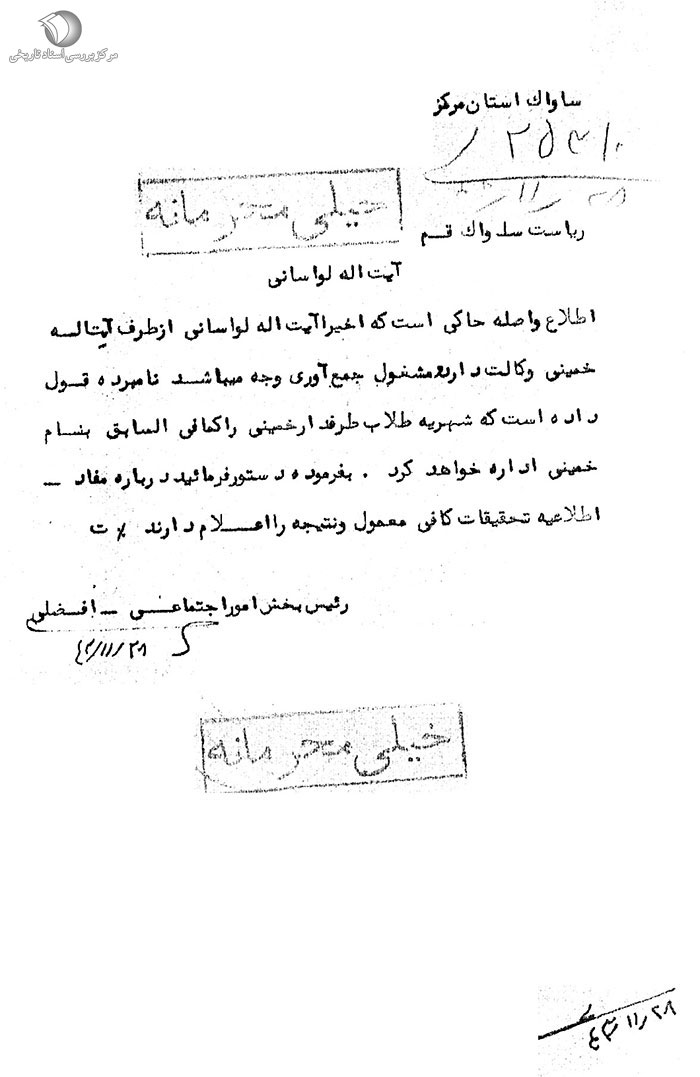 مرکز بررسی اسناد تاریخی
ساواك استان مرکز
۲۸/۱۱/
خیلی محرمانه
ریاست ساواك قـم
آیت اله لواسانی
اطلاع واصله حاکی است که اخیرا آیت اله لواسانی ازطرف آیتالـه
خمینی وکالت دارد مشغول جمع آوری وجه میباشـد نامبرده قـول
داده است که شهریه طلاب طرفدار خمینی راکمافی السابق بنـام
خمینی اداره خواهد کرد . بفرموده دستورفرمائید درباره مفاد ـ
اطلاعیه تحقیقات کافی معمول ونتیجه رااعـلام دارند ٪ ت
رئیس بخش امور اجتماعـی ـ افـضلی
۴۳/۱۱/۲۸
خیلی محرمانه
۴۳/۱۱/۲۸